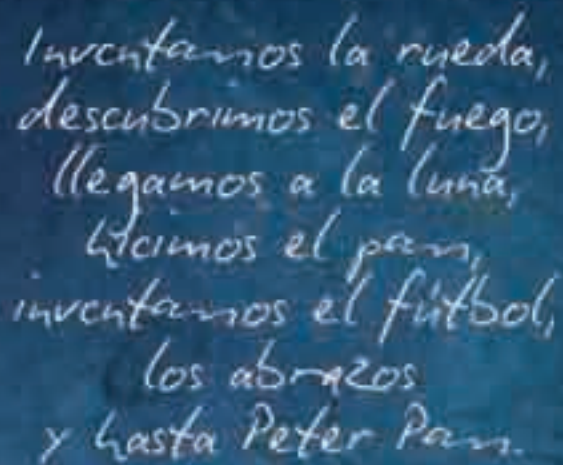 Inventamos la rueda,
descubrimos el fuego,
llegamos a la luna,
hicimos el pan,
inventamos el fútbol,
los abrazos
y hasta Peter Pan.